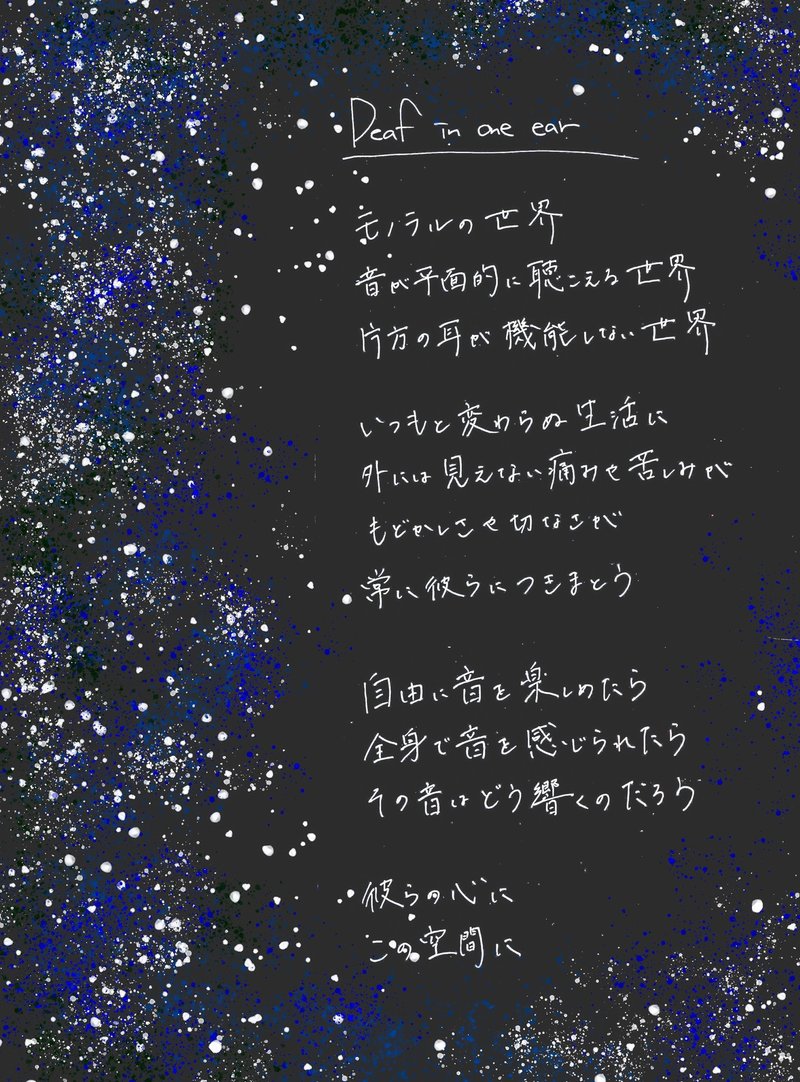 Deaf in one ear
モノラルの世界
音が平面的に聴こえる世界
片方の耳が機能しない世界
いつもと変わらぬ生活に
外には見えない痛みや苦しみが
もどかしさや切なさが
常に彼らにつきまとう
自由に音を楽しめたら
全身で音を感じられたら
その音はどう響くのだろう
彼らの心に
この空間に